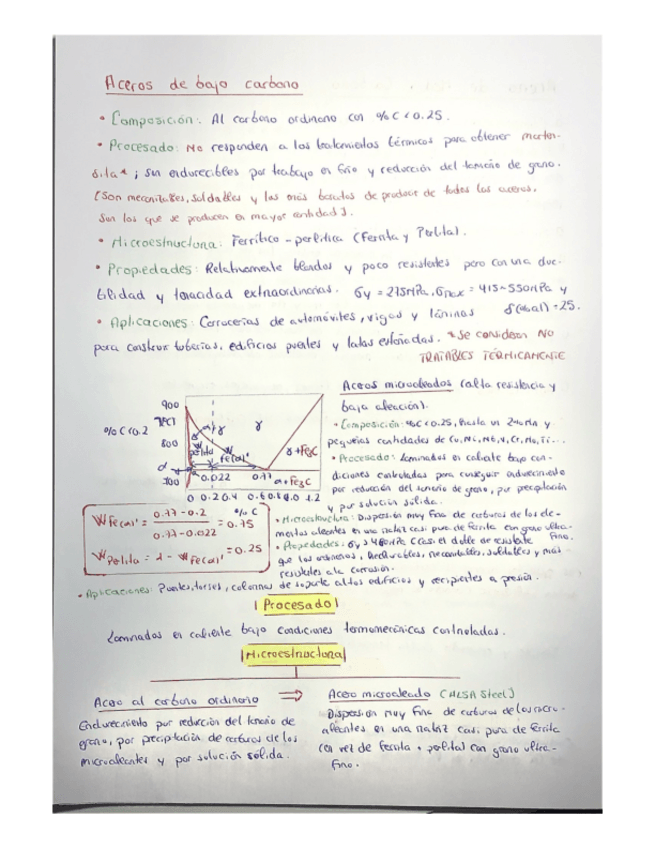 Aceros de bajo carbono
• Composición: Al carbono ordinario con %C < 0.25.
• Procesado: No responden a los tratamientos térmicos para obtener marten-
sita* ; son endurecibles por trabajo en frío y reducción del tamaño de grano.
[Son mecanizables, soldables y los más baratos de producir de todos los aceros.
Son los que se producen en mayor cantidad].
• Microestructura: Ferrítico - perlítica (Ferrita y Perlita).
• Propiedades: Relativamente blandos y poco resistentes pero con una duc-
tilidad y tenacidad extraordinarias. σy = 275MPa, σmax = 415~550MPa y
δ(%al) = 25.
• Aplicaciones: Carrocerías de automóviles, vigas y láminas
para construir tuberías, edificios puentes y latas estañadas. *Se consideran NO
TRATABLES TÉRMICAMENTE
Aceros microaleados (alta resistencia y
baja aleación).
%C<0.2
900
800
700
α+γ
γ
γ+Fe3C
perlita
α
0.022
0.77
α+Fe3C
0 0.2 0.4 0.6 0.8 1.0 1.2
% C
• Composición: %C < 0.25, hasta un 2% Mn y
pequeñas cantidades de Cu, Ni, Nb, V, Cr, Mo, Ti...
• Procesado: Laminados en caliente bajo con-
diciones controladas para conseguir endurecimiento
por reducción del tamaño de grano, por precipitación
y por solución sólida.
W Fe(α)' = 0.77-0.2 / 0.77-0.022 = 0.75
W Perlita = 1 - W Fe(α)' = 0.25
• Microestructura: Dispersión muy fina de carburos de los ele-
mentos aleantes en una matriz casi pura de ferrita con grano ultra-
fino.
• Propiedades: σy > 480MPa (casi el doble de resistente
que los ordinarios), mecanizables, soldables y más
resistentes a la corrosión.
• Aplicaciones: Puentes, torres, columnas de soporte altos edificios y recipientes a presión.
Procesado
Laminados en caliente bajo condiciones termomecánicas controladas.
Microestructura
Acero al carbono ordinario ⇒ Acero microaleado (HLSA Steel)
Endurecimiento por reducción del tamaño de
grano, por precipitación de carburos de los
microaleantes y por solución sólida.
Dispersión muy fina de carburos de los micro-
aleantes en una matriz casi pura de ferrita
(en vez de ferrita + perlita) con grano ultra-
fino.